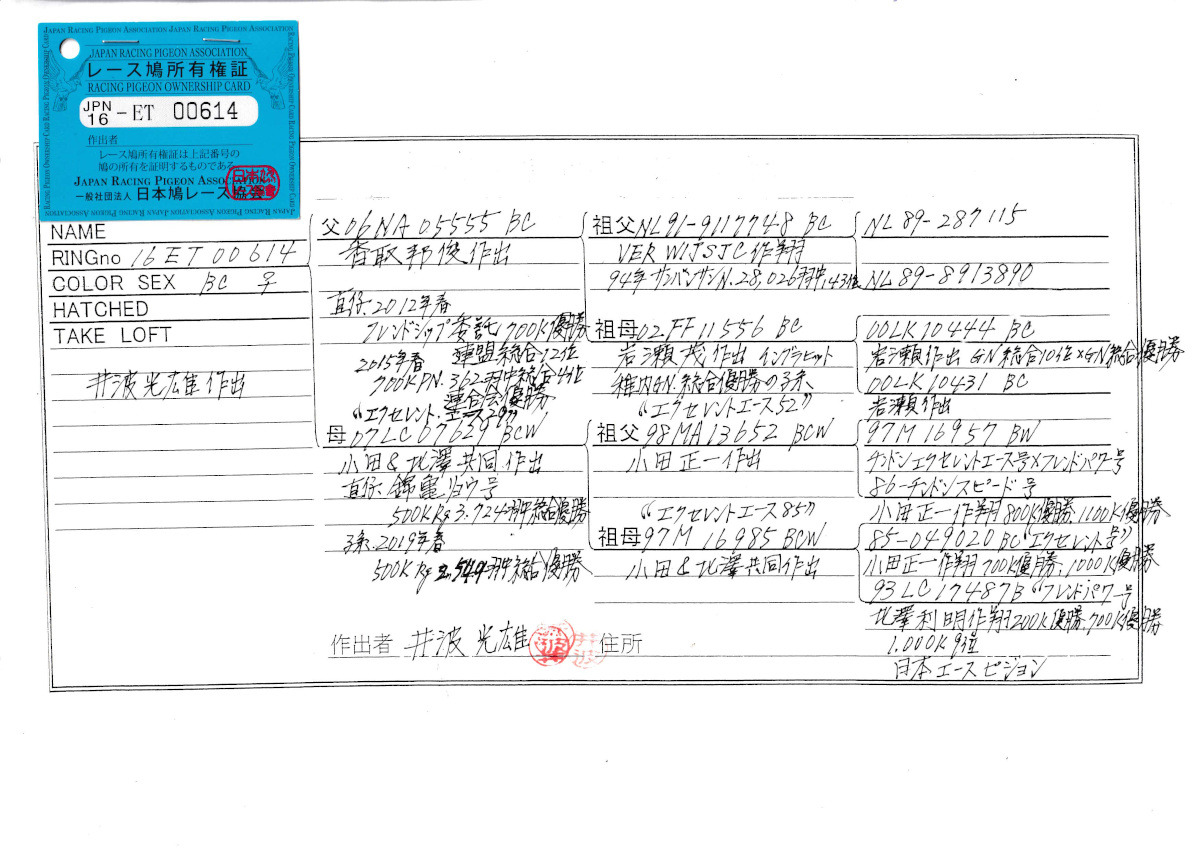 JAPAN RACING PIGEON ASSOCIATION JAPAN RACING PIGEON ASSOCIATION
JAPAN RACING PIGEON ASSOCIATION
レース鳩所有権証
RACING PIGEON OWNERSHIP CARD
JPN 16 -ET 00614
作出者
レース鳩所有権証は上記番号の
鳩の所有を証明するものである
JAPAN RACING PIGEON ASSOCIATION
一般社団法人 日本鳩レース協会
NAME
RINGno 16ET00614
COLOR SEX BC ♀
HATCHED
TAKE LOFT
井波光雄作出
父06NA05555 BC
香取邦俊作出
直仔.2012年春
フレンドシップ委託1700K優勝
連盟総合12位
2015年春
700KPN.362羽中総合4位
連合会優勝
"エクセレント.エース29"
母07LC07629 BCW
小田&北澤共同作出
直仔.錦亀リョウ号
500KRg3.724羽中総合優勝
3系.2019年春
500KRg 2,544羽中総合優勝
祖父NL91-9117748 BC
VER WIJSJC作翔
94年サンバンサンN.28,026羽中,43位
祖母02.FF11556 BC
岩瀬茂作出 イングラビット
稚内GN.総合優勝の3系、
"エクセレントエース52"
祖父98MA13652 BCW
小田正一作出
"エクセレントエース85"
祖母97M16985 BCW
小田&北澤共同作出
NL89-287115
NL89-8913890
00LK10444 BC
岩瀬作出 GN総合10位×GN総合優勝
00LK10431 BC
岩瀬作出
97M16957 BW
チンドンエクセレントエース号×フレンドパワー号
86-チンドンスピード号
小田正一作翔800K優勝,1100K優勝
85-049020 BC"エクセレント号"
小田正一作翔700K優勝,1000K優勝
93LC17487B"フレンドパワー号
北澤利明作翔1200K優勝.700K優勝
1,000K9位
日本エースピジョン
作出者 井波光雄 住所